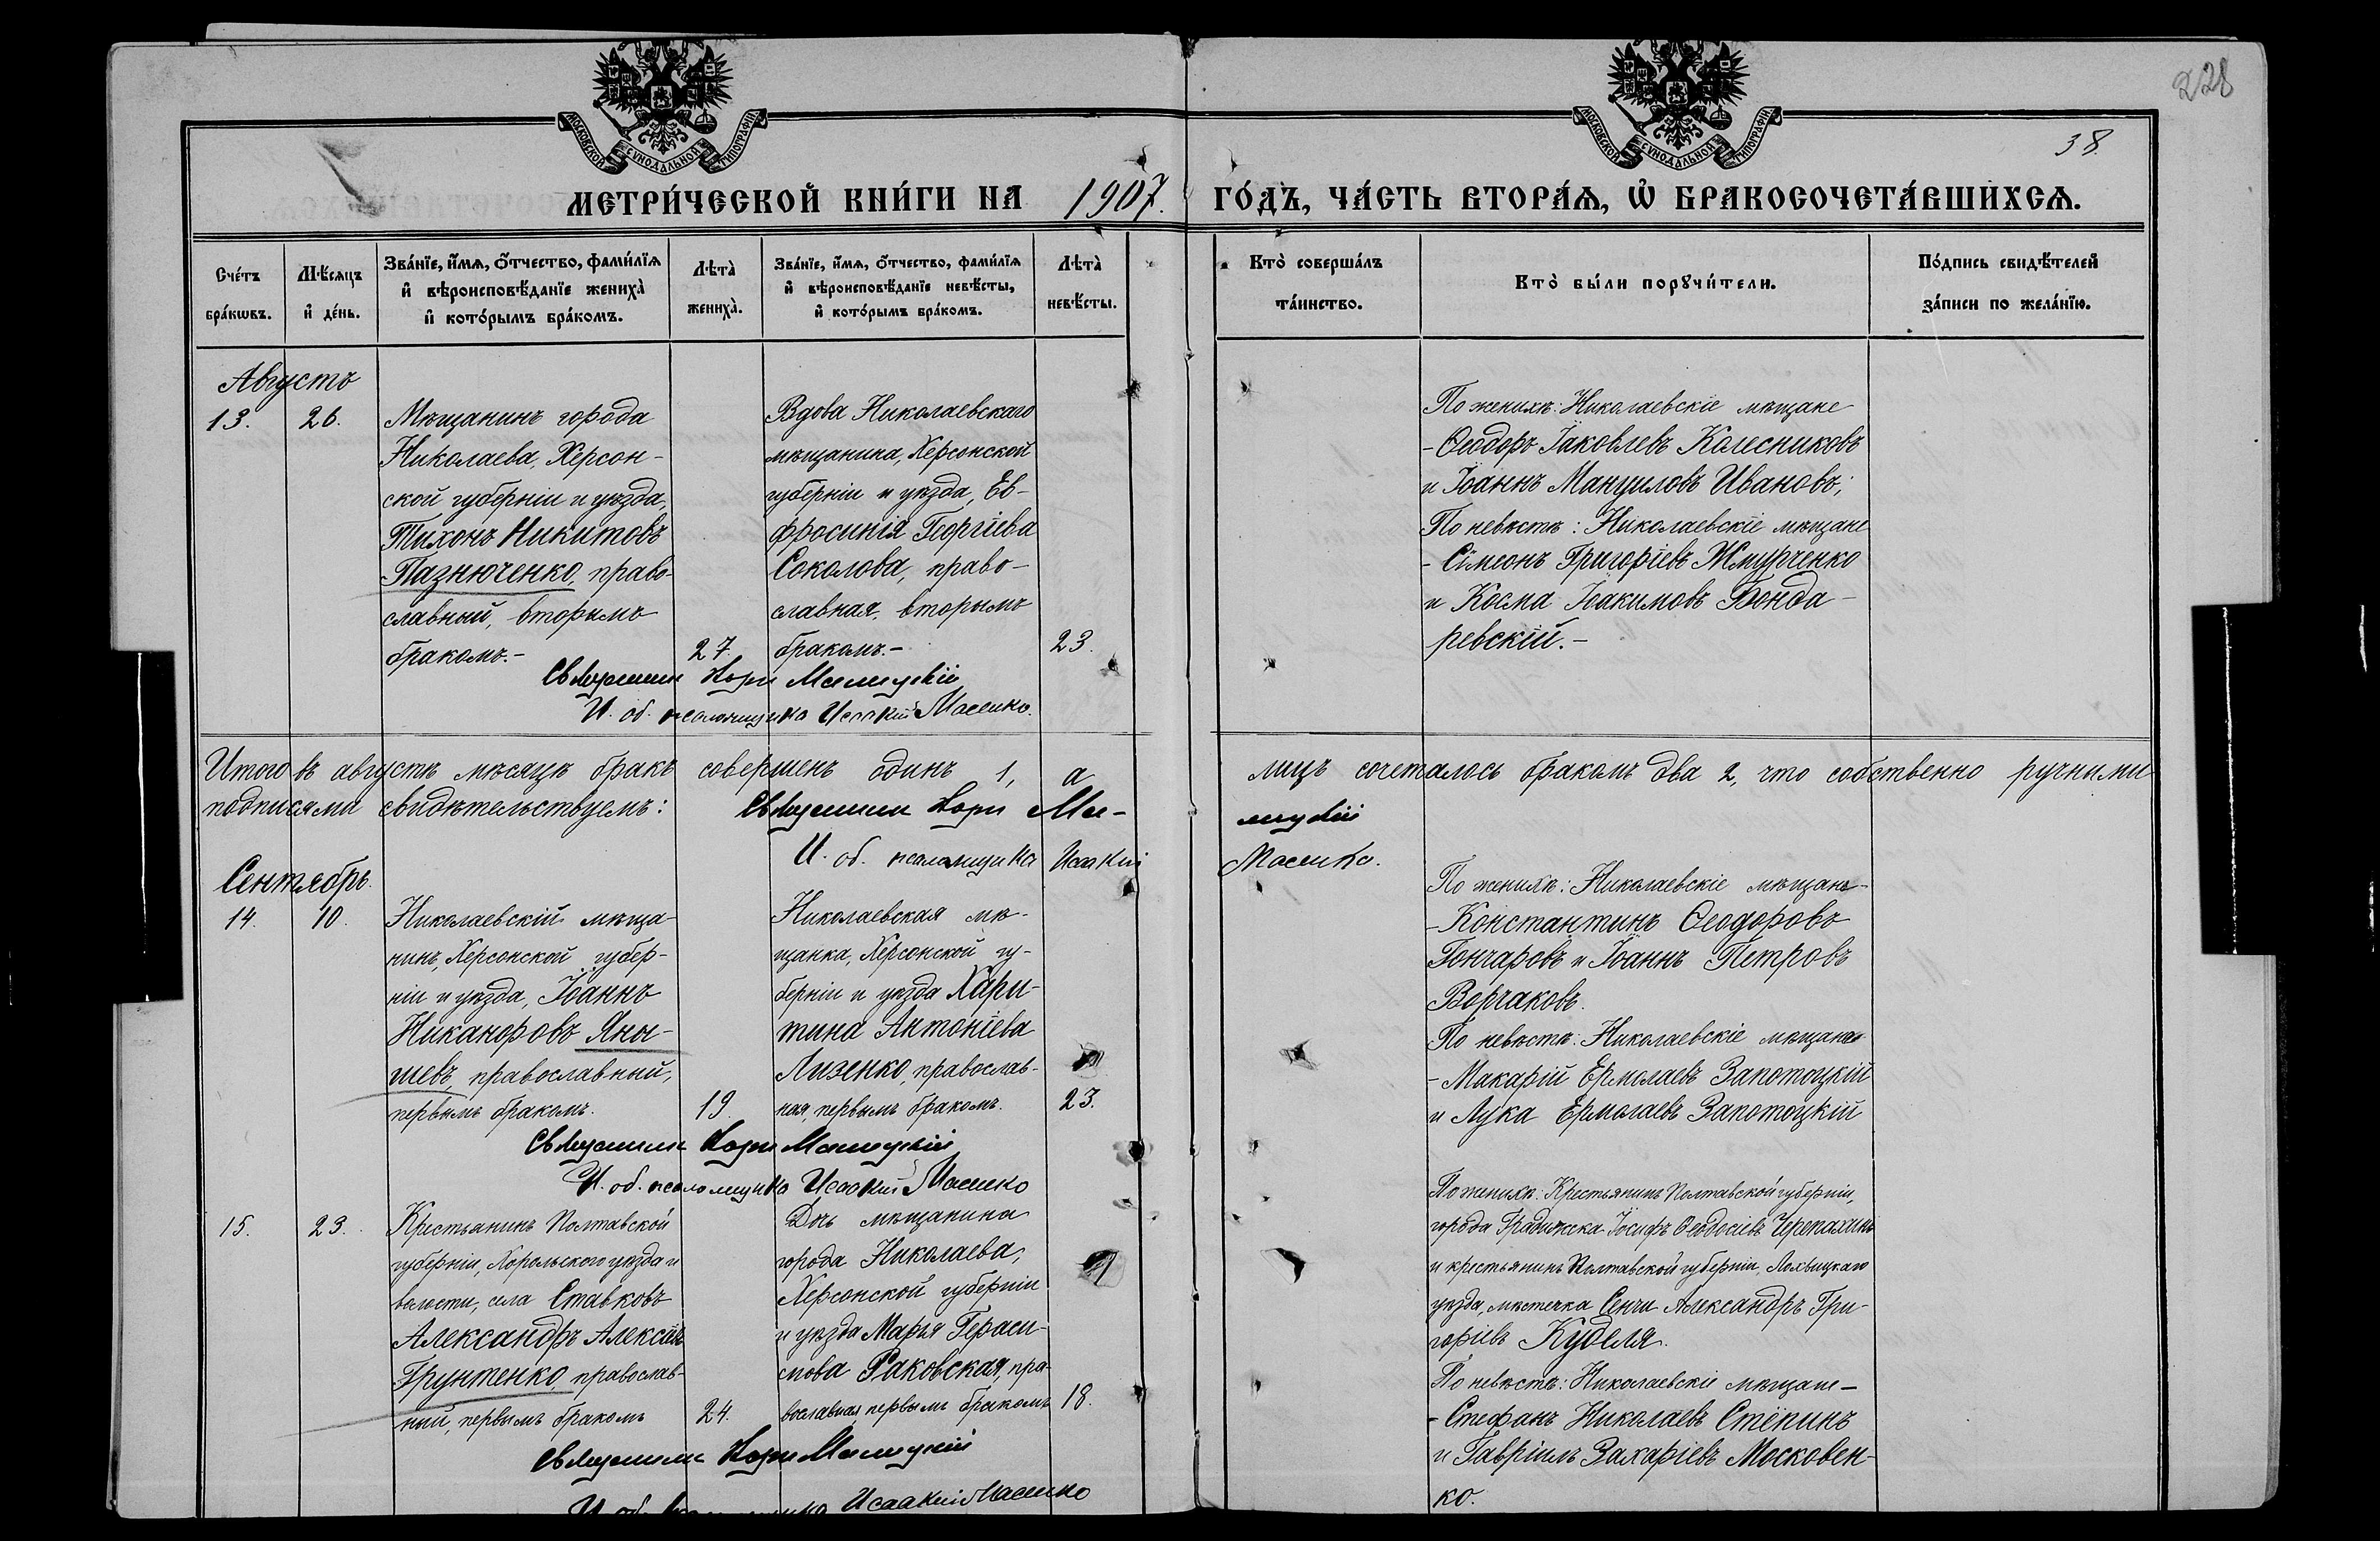 228
38.
МОСКОВСКОЙ СѴНОДАЛЬНОЙ ТИПОГРАФІИ
МОСКОВСКОЙ СѴНОДАЛЬНОЙ ТИПОГРАФІИ
МЕТРИ́ЧЕСКОЙ КНИ́ГИ НА 1907. ГО́ДЪ, ЧА́СТЬ ВТОРА́Ѧ, Ѽ БРАКОСОЧЕТА́ВШИХСѦ.
Сче́тъ
бра́кѡвъ.
Мѣ́сяцъ
и҆ де́нь.
Зва́нїе, и҆́мѧ, ѻ҆́тчество, фами́лїѧ
и҆ вѣроисповѣ́данїе жениха̀
и҆ кото́рымъ бра́комъ.
Лѣта̀
жениха̀.
Зва́нїе, и҆́мѧ, ѻ҆́тчество, фами́лїѧ
и҆ вѣроисповѣ́данїе невѣ́сты,
и҆ кото́рымъ бра́комъ.
Лѣта̀
невѣ́сты.
Кто̀ соверша́лъ
та́инство.
Кто̀ бы́ли порꙋчи́тели.
По́дпись свидѣ́телей
за́писи по жела́нїю.
Августъ
13.
26.
Мѣщанинъ города
Николаева, Херсон-
ской губерніи и уѣзда,
Тихонъ Никитовъ
Пазнюченко, право-
славный, вторымъ
бракомъ.-
27.
Вдова Николаевскаго
мѣщанина, Херсонской
губерніи и уѣзда, Ев-
фросинія Георгіева
Соколова, право-
славная, вторымъ
бракомъ.-
23.
По женихѣ: Николаевскіе мѣщане
- Ѳеодоръ Іаковлевъ Колесниковъ
и Іоаннъ Мануиловъ Ивановъ;
По невѣстѣ: Николаевскіе мѣщане
- Сѵмеонъ Григоріевъ Жмурченко
и Косма Іоакимовъ Бонда-
ревскій.-
Священникъ
И. об. псаломщика Исаакій
Итого въ августѣ мѣсяцѣ бракъ совершенъ одинъ 1, а лицъ сочеталось бракомъ два 2, что собственно ручными
подписями свидѣтельствуемъ: Священникъ
И. об. псаломщика Исаакій
Сентябрь.
14.
10.
Николаевскій мѣща-
нинъ, Херсонской губер-
ніи и уѣзда, Іоаннъ
Никаноровъ Яны-
шевъ, православный,
первымъ бракомъ.
19.
Николаевская мѣ-
щанка, Херсонской гу-
берніи и уѣзда Хари-
тина Антоніева
Лизенко, православ-
ная, первымъ бракомъ.
23.
По женихѣ: Николаевскіе мѣщане-
- Константинъ Ѳеодоровъ
Гончаровъ и Іоаннъ Петровъ
Ворчаковъ.
По невѣстѣ: Николаевскіе мѣщане
- Макарій Ермолаевъ Запотоцкій
и Лука Ермолаевъ Запотоцкій
Священникъ
И. об. псаломщика Исаакій
15.
23.
Крестьянинъ Полтавской
губерніи, Хорольского уѣзда и
волости, села Ставковъ
Александръ Алексіевъ
Грунтенко, православ-
ный, первымъ бракомъ
24.
Дочь мѣщанина
города Николаева,
Херсонской губерніи
и уѣзда Марья Гераси-
мова Раковская, пра-
вославная первымъ бракомъ
18.
По женихѣ: Крестьянинъ Полтавской губерніи,
города Градижска Іосифъ Ѳеодосіевъ Черепахинъ
и крестьянинъ Полтавской губерніи, Лохвицкаго
уѣзда, мѣстечка Сенчи Александръ Гри-
горіевъ Куделя.
По невѣстѣ: Николаевскіе мѣщане-
- Стефанъ Николаевъ Стёпинъ
и Гавріилъ Захаріевъ Московен-
ко.
Священникъ
Исаакій